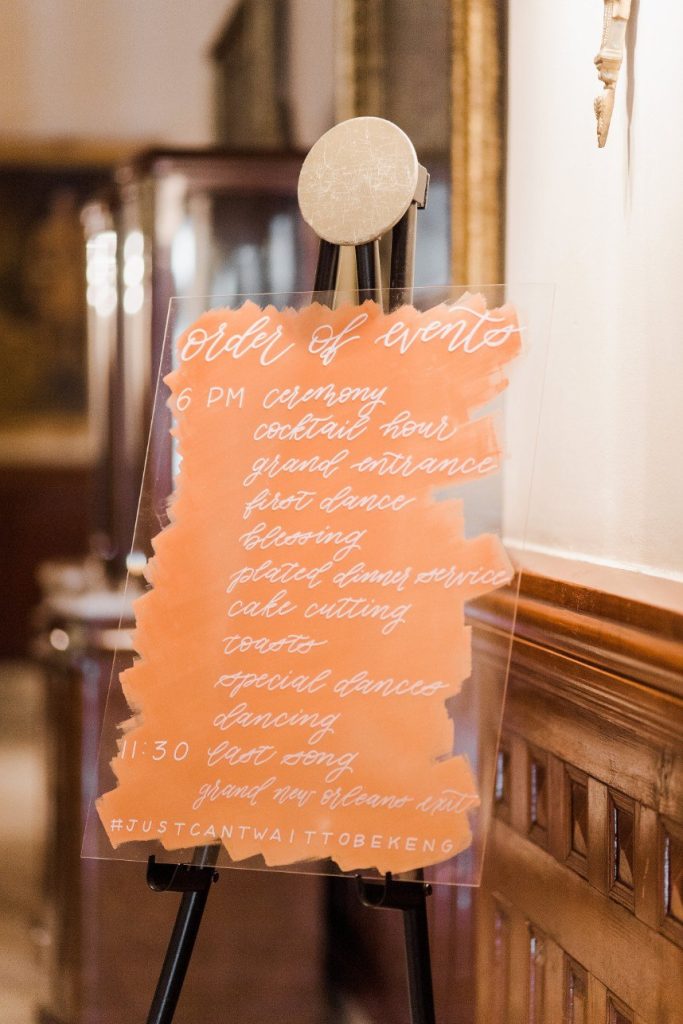 order of events
6 PM ceremony
cocktail hour
grand entrance
first dance
blessing
plated dinner service
cake cutting
toasts
special dances
dancing
11:30 last song
grand new orleans exit
#JUSTCANTWAITTOBEKENG